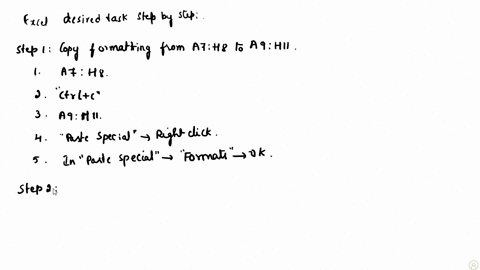 Excel desired task step by step:
Step 1: Copy formatting from A7:H8 to A9:H11.
1. A7:H8.
2. "Ctrl+c"
3. A9:H11.
4. "Paste Special" → Right click.
5. In "Paste Special" → "Formats" → OK.
Step 2: